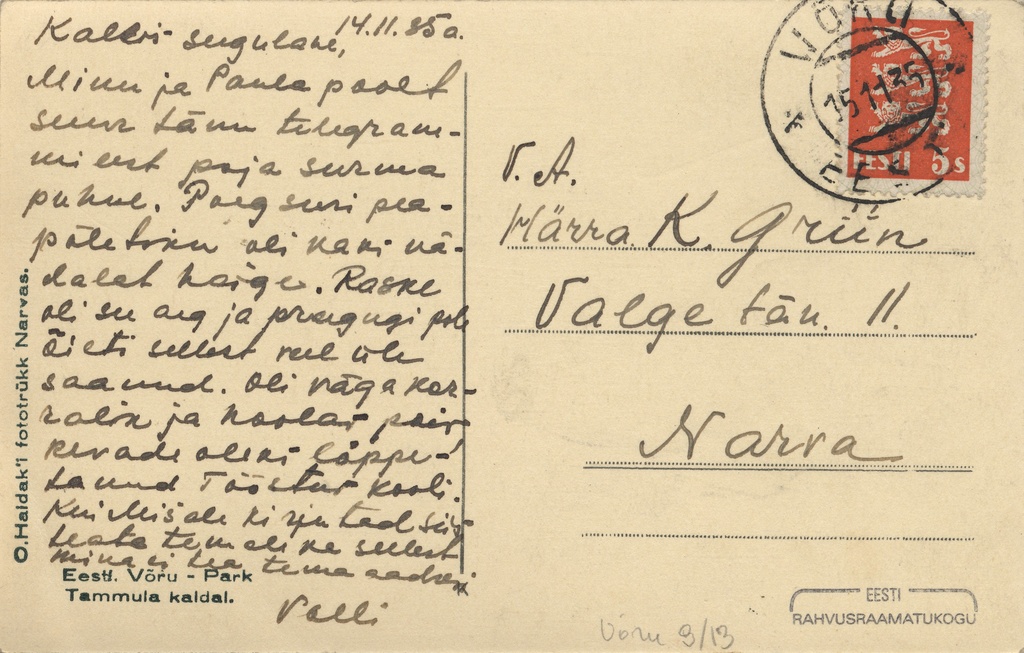 14.11.35 a.
Kallis sugulane,
Minu ja Paula poolt
suur tänu telegram-
mi eest poja surma
puhul. Poeg suri pea-
põletikku oli kaks nä-
dalat haige. Raske
oli see aeg ja praegugi pole
õieti sellest veel üle
saanud. Oli väga kor-
ralik ja hoolas poiss
kevade oleks lõppe-
tanud Tööstus kooli.
Kui Mišale kirjutad siis
teata temale ka sellest
mina ei tea tema aadressi
Valli
O. Haidak'i fototrükk Narvas.
Eesti. Võru - Park
Tammula kaldal.
VÕRU
15.11.35
EESTI
EESTI 5 s
V. A.
Härra K. Grün
Valge tän. 11.
Narva
Võru 3/13
EESTI
RAHVUSRAAMATUKOGU